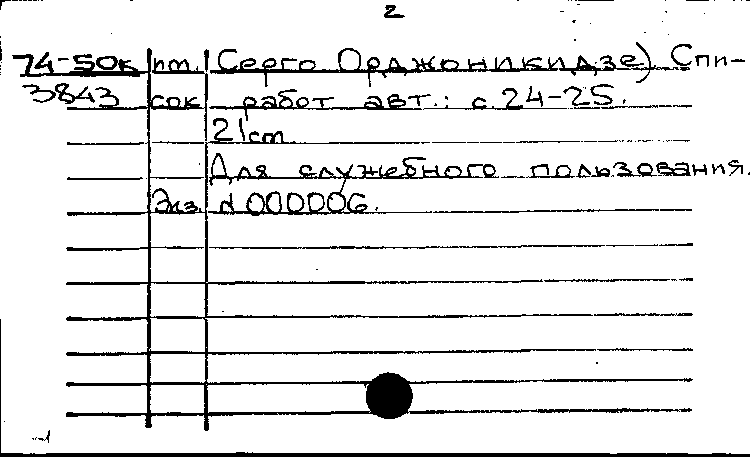 2
74-50к пт. Серго Орджоникидзе). Спи-
3843 сок работ авт.: с. 24-25.
21см
Для служебного пользования.
Экз. № 000006.